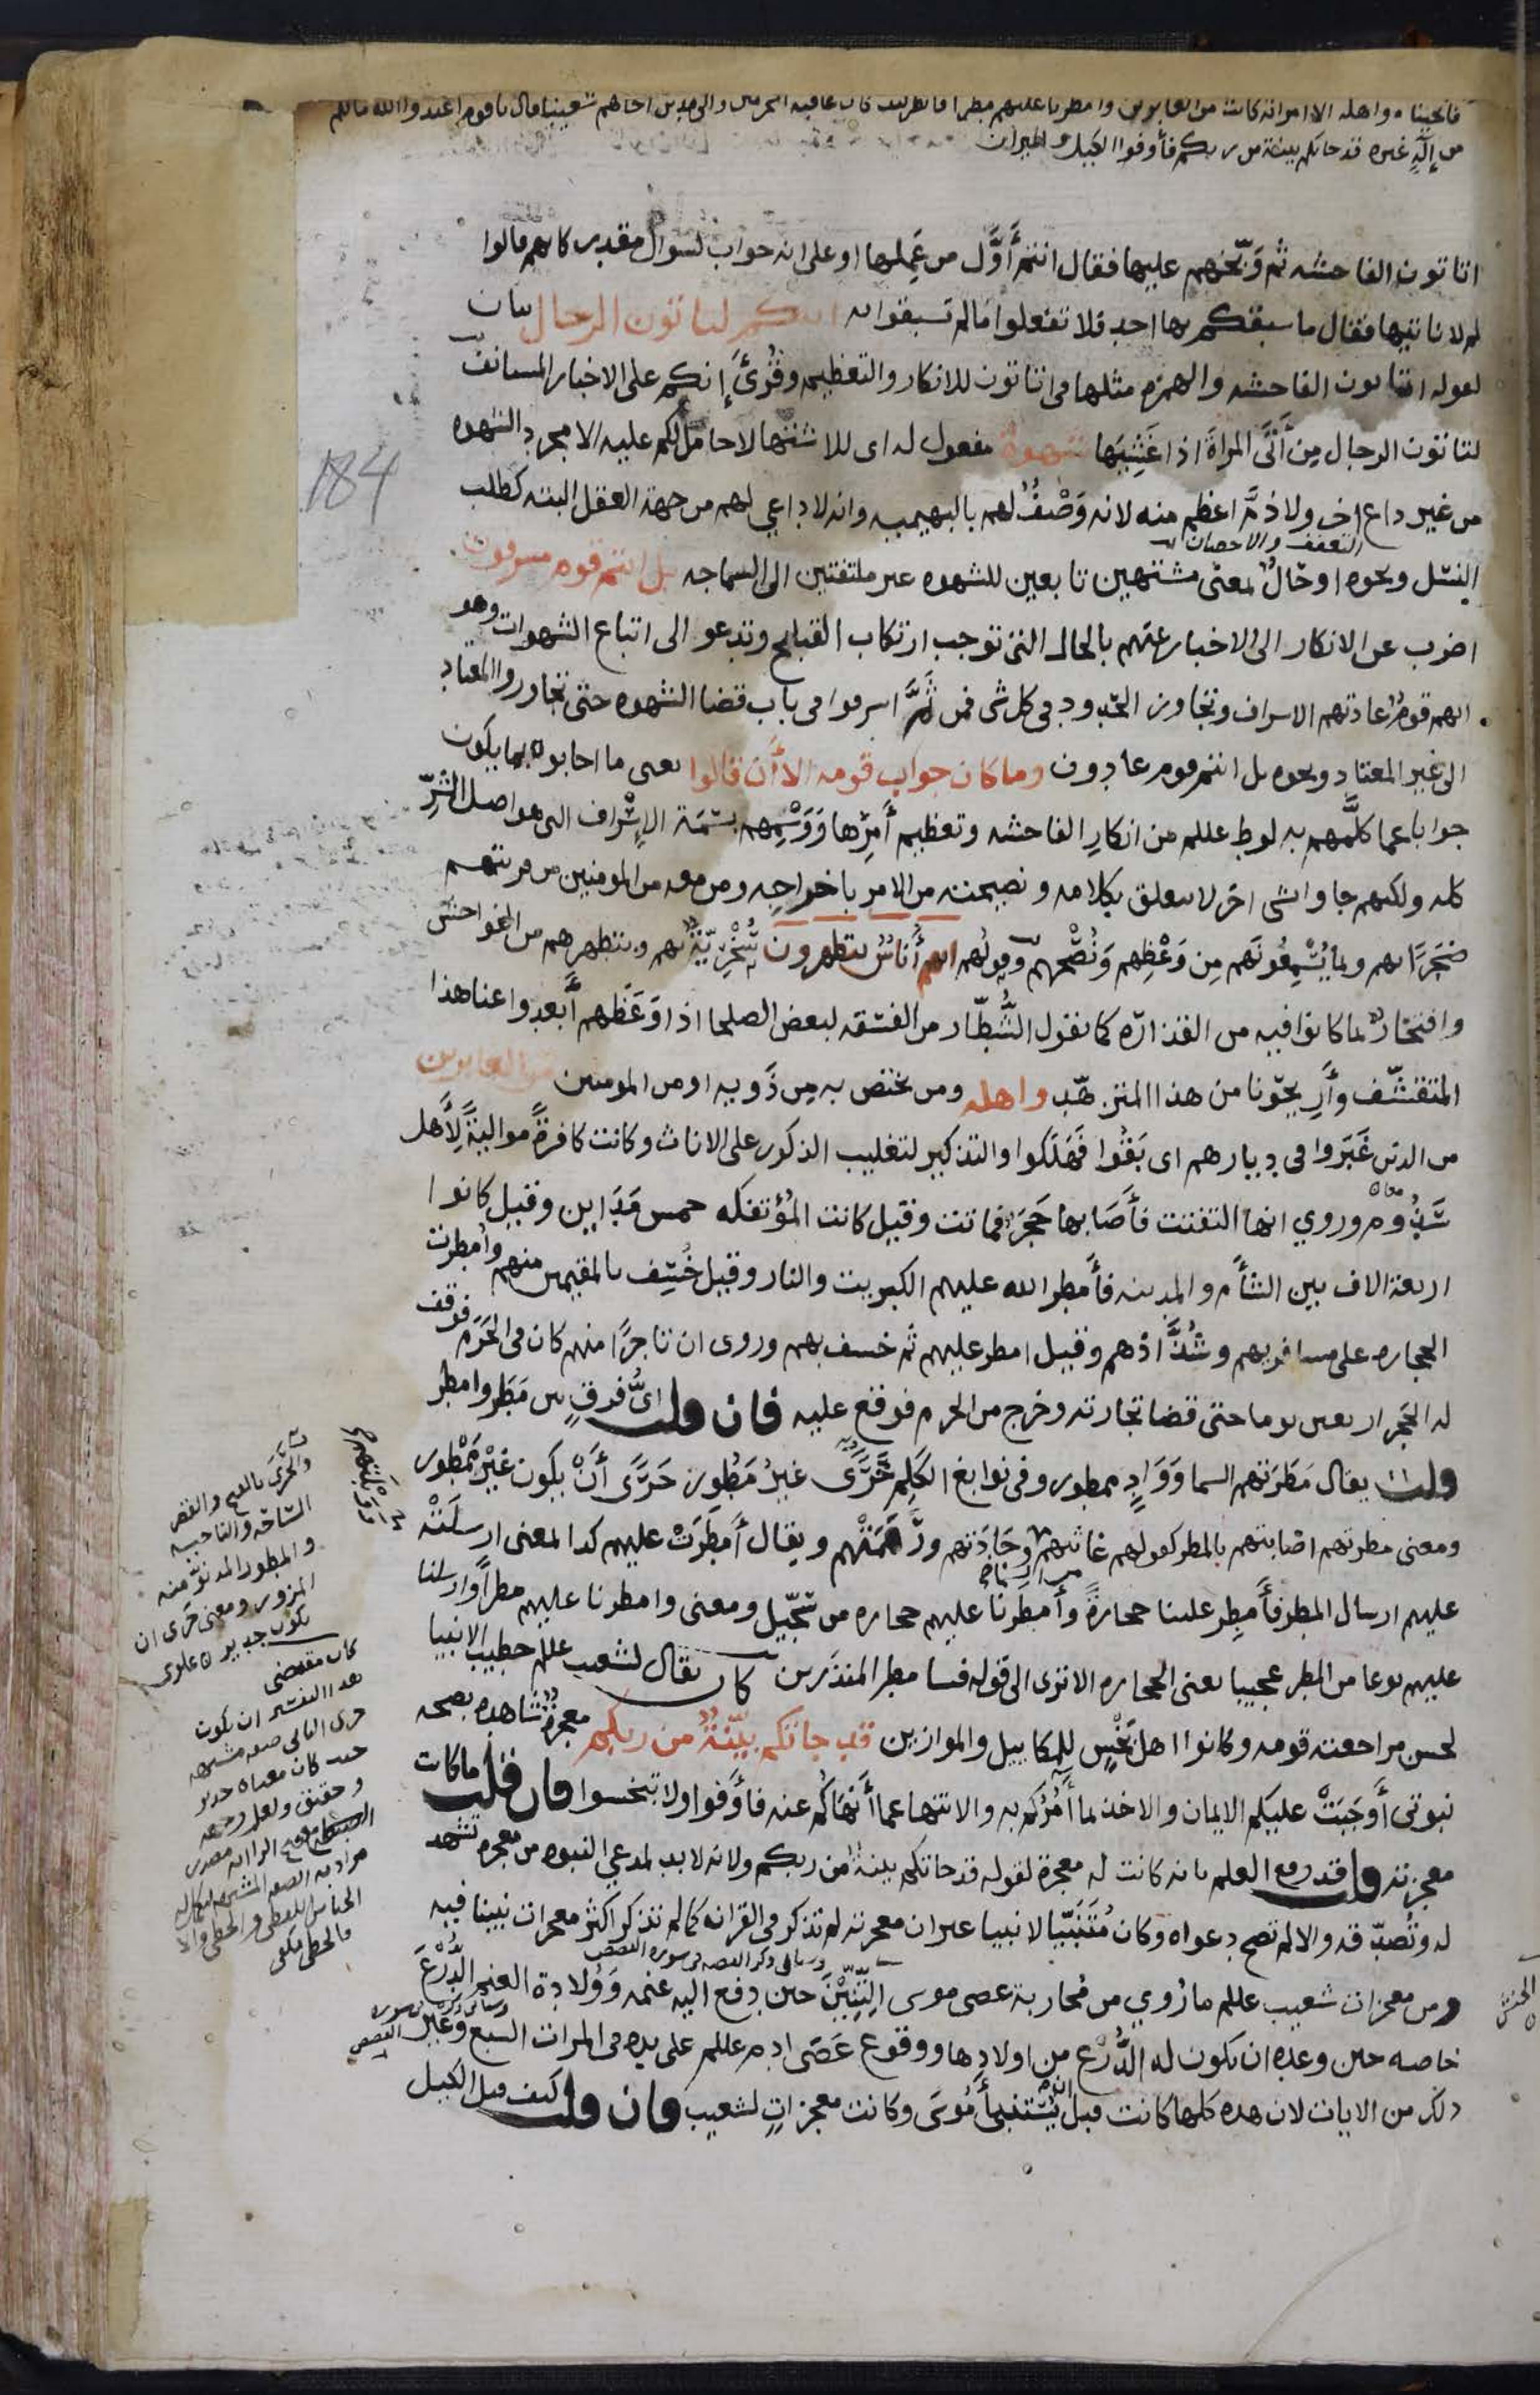 فانجيناه واهله الا امراته كانت من الغابرين وامطرنا عليهم مطرا فانظر كيف كان عاقبة المجرمين والى مدين اخاهم شعيبا قال ياقوم اعبدوا الله مالكم
من إلهٍ غيره قد جاتكم بينة من ربكم فأوفوا الكيل والميزان
اتاتون الفاحشه ثم وَبّخهم عليها فقال انتم أوَّل من عَمِلها او على انه جواب لسوال مقدر كانهم قالوا
لم لا ناتيها فقال ما سبقكم بها احد فلا تفعلوا ما لم تسبقوا به انكم لتاتون الرجال بيان
لقوله اتاتون الفاحشه والهمزه مثلها في اتاتون للانكار والتعظيم وقُرئَ إنكم على الاخبار المستانف
لتاتون الرجال مِن أَتَى المراةَ اذا غَشِيَها شهوة مفعول له اى للاشتها لا حامل لكم عليه الا مجرد الشهوه
من غير داع اخر ولا ذمَّ اعظم منه لانه وَصْفٌ لهم بالبهيميه وانه لا داعي لهم من جهة العقل البته كطلب
التعفف والاحصان
النسل ونحوه او حَالٌ بمعنى مشتهين تابعين للشهوه غير ملتفتين الى السماجه بل انتم قوم مسرفون
اضرب عن الانكار الى الاخبار عنهم بالحال التى توجب ارتكاب القبايح وتدعو الى اتباع الشهوات وهو
انهم قوم عادتهم الاسراف وتجاوز الحدود في كل شى فمن ثَمَّ اسرفوا في باب قضا الشهوه حتى تجاوروا المعتاد
الى غير المعتاد ونحوه بل انتم قوم عادون وما كان جواب قومه الا أن قالوا يعنى ما اجابوه بما يكون
جوابا عما كلَّمهم به لوط عللم من انكارِ الفاحشه وتعظيم أمرها وَوَسْمِهم بسَمَة الإسْراف الذى هو اصل الشرّ
كله ولكنهم جاوا بشى اخر لا يتعلق بكلامه ونصيحته من الامر باخراجه ومن معه من المومنين من قريتهم
ضَجَرًا بهم وبما يُسْمِعُونَهم مِن وَعْظِهم وَنُصْحِهم وقولُهم انهم أُناسٌ يتطهرون سُخْرِيّةٌ بهم وبتطهرهم من الفواحش
وافتخارٌ بما كانوا فيه من القذارة كما يقول الشُّطّار من الفسقه لبعض الصلحا اذا وَعَظهم أبعدوا عنا هذا
المتقشّف وأَرِيحُونا من هذا المتزهّد واهله ومن يختص به مِن ذَويه او من المومنين من الغابرين
من الذين غَبَروا في ديارهم اى بَقُوا فَهَلَكوا والتذكير لتغليب الذكور على الاناث وكانت كافرةً مواليةً لِأهل
سَدُوم وروي انها التفتت فأصَابها حَجَر فماتت وقيل كانت المؤتفكه خمس مَدَاين وقيل كانوا
اربعة الاف بين الشأم والمدينه فأمطر الله عليهم الكبريت والنار وقيل خُسِف بالمقيمين منهم وأمطرت
الحجاره على مسافريهم وشُذَّاذهم وقيل امطر عليهم ثم خسف بهم وروى ان تاجرًا منهم كان في الحَرَم فوقف
له الحَجَر اربعين يوما حتى قضا تجارته وخرج من الحرم فوقع عليه فان قلت اىُّ فرقٍ بين مَطَر وامطر
قلت يقال مَطَرتهم السما وَوَادٍ ممطور وفى نوابغ الكَلِم حَرًى غيرُ مَمْطور حَرًى أنْ يكون غيْرَ مَمْطور
ومعنى مطرتهم اصابتهم بالمطر كقولهم غاثتهم وجَادَتهم ورَهَمَتْهم ويقال أمطَرَتْ عليهم كذا المعنى ارسلَتْه
عليهم ارسال المطر فأمطِر علينا حجارةً وأمطَرنا عليهم حجاره من سجّيل ومعنى وامطرنا عليهم مطراً وارسلنا
عليهم نوعا من المطر عجيبا يعنى الحجاره الا ترى الى قوله فسا مطر المنذَرين كان يقال لشعيب عللم خطيب الانبيا
لحسن مراجعته قومه وكانوا اهل بَخْسٍ للمكاييل والموازين قد جاتكم بيّنةٌ من ربكم معجزةٌ شاهدة بصحه
نبوتى أوجَبَتْ عليكم الايمان والاخذ بما أمُرُكم به والانتها عما أنهَاكُم عنه فأوفوا ولا تبخسوا فان قلت ما كانت
معجزته قلت قد وقع العلم بانه كانت له معجزة لقوله قد جاتكم بينة من ربكم ولانه لا بد لمدعي النبوه من معجزه تشهد
له وتُصدّقه والا لم تصح دعواه وكان مُتَنَبّيا لا نبيا غير ان معجزته لم تذكر في القران كما لم تذكر اكثر معجزات نبينا فيه
ومن معجزات شعيب عللم ما رُوي من مُحاربة عصى موسى التِنِّيْنَ حين دفع اليه غنمه وَوُلادة الغنم الدُّرْعَ
خاصه حين وعده ان يكون له الدُّرْع من اولادها ووقوع عَصَى ادم عللم على يده في المرات السبع وغير
ذلك من الايات لان هذه كلها كانت قبل ان يُسْتَنبأ مُوسَى وكانت معجزاتٍ لشعيب فان قلت كيف قيل الكيل
184
والحَرَى بالفتح والقصر
السّاحة والناحيه
والممطور المدنوّ منه
المزور ومعنى حَرَى ان
يكون جدير ان